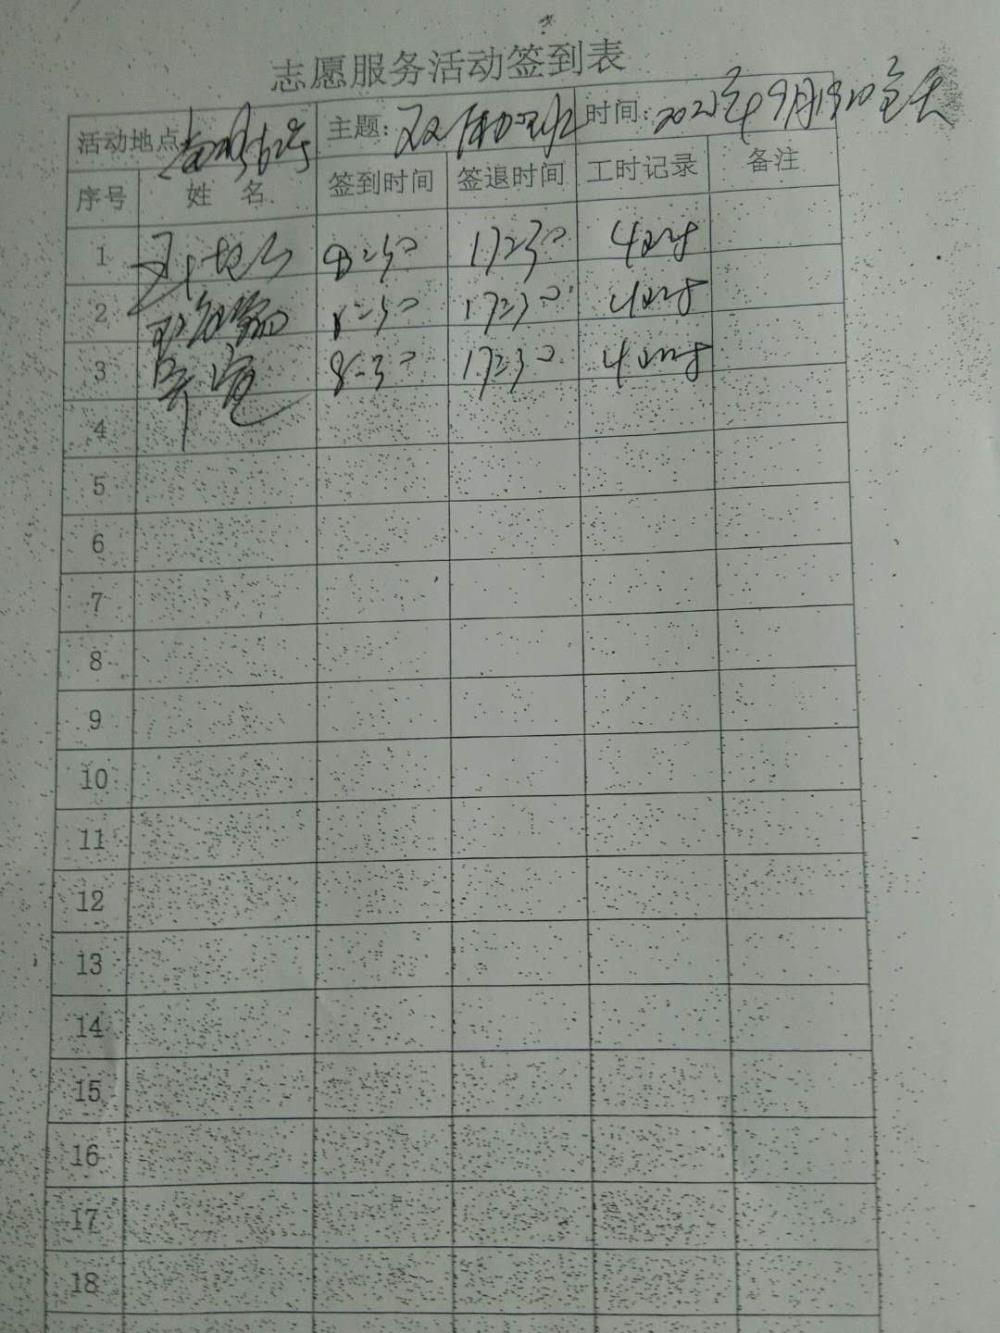 志愿服务活动签到表
活动地点 62号 主题: 双 时间: 2021年9月19日全天
序号 姓 名 签到时间 签退时间 工时记录 备注
1 8:30 17:30 4小时
2 8:30 17:30 4小时
3 8:30 17:30 4小时
4
5
6
7
8
9
10
11
12
13
14
15
16
17
18